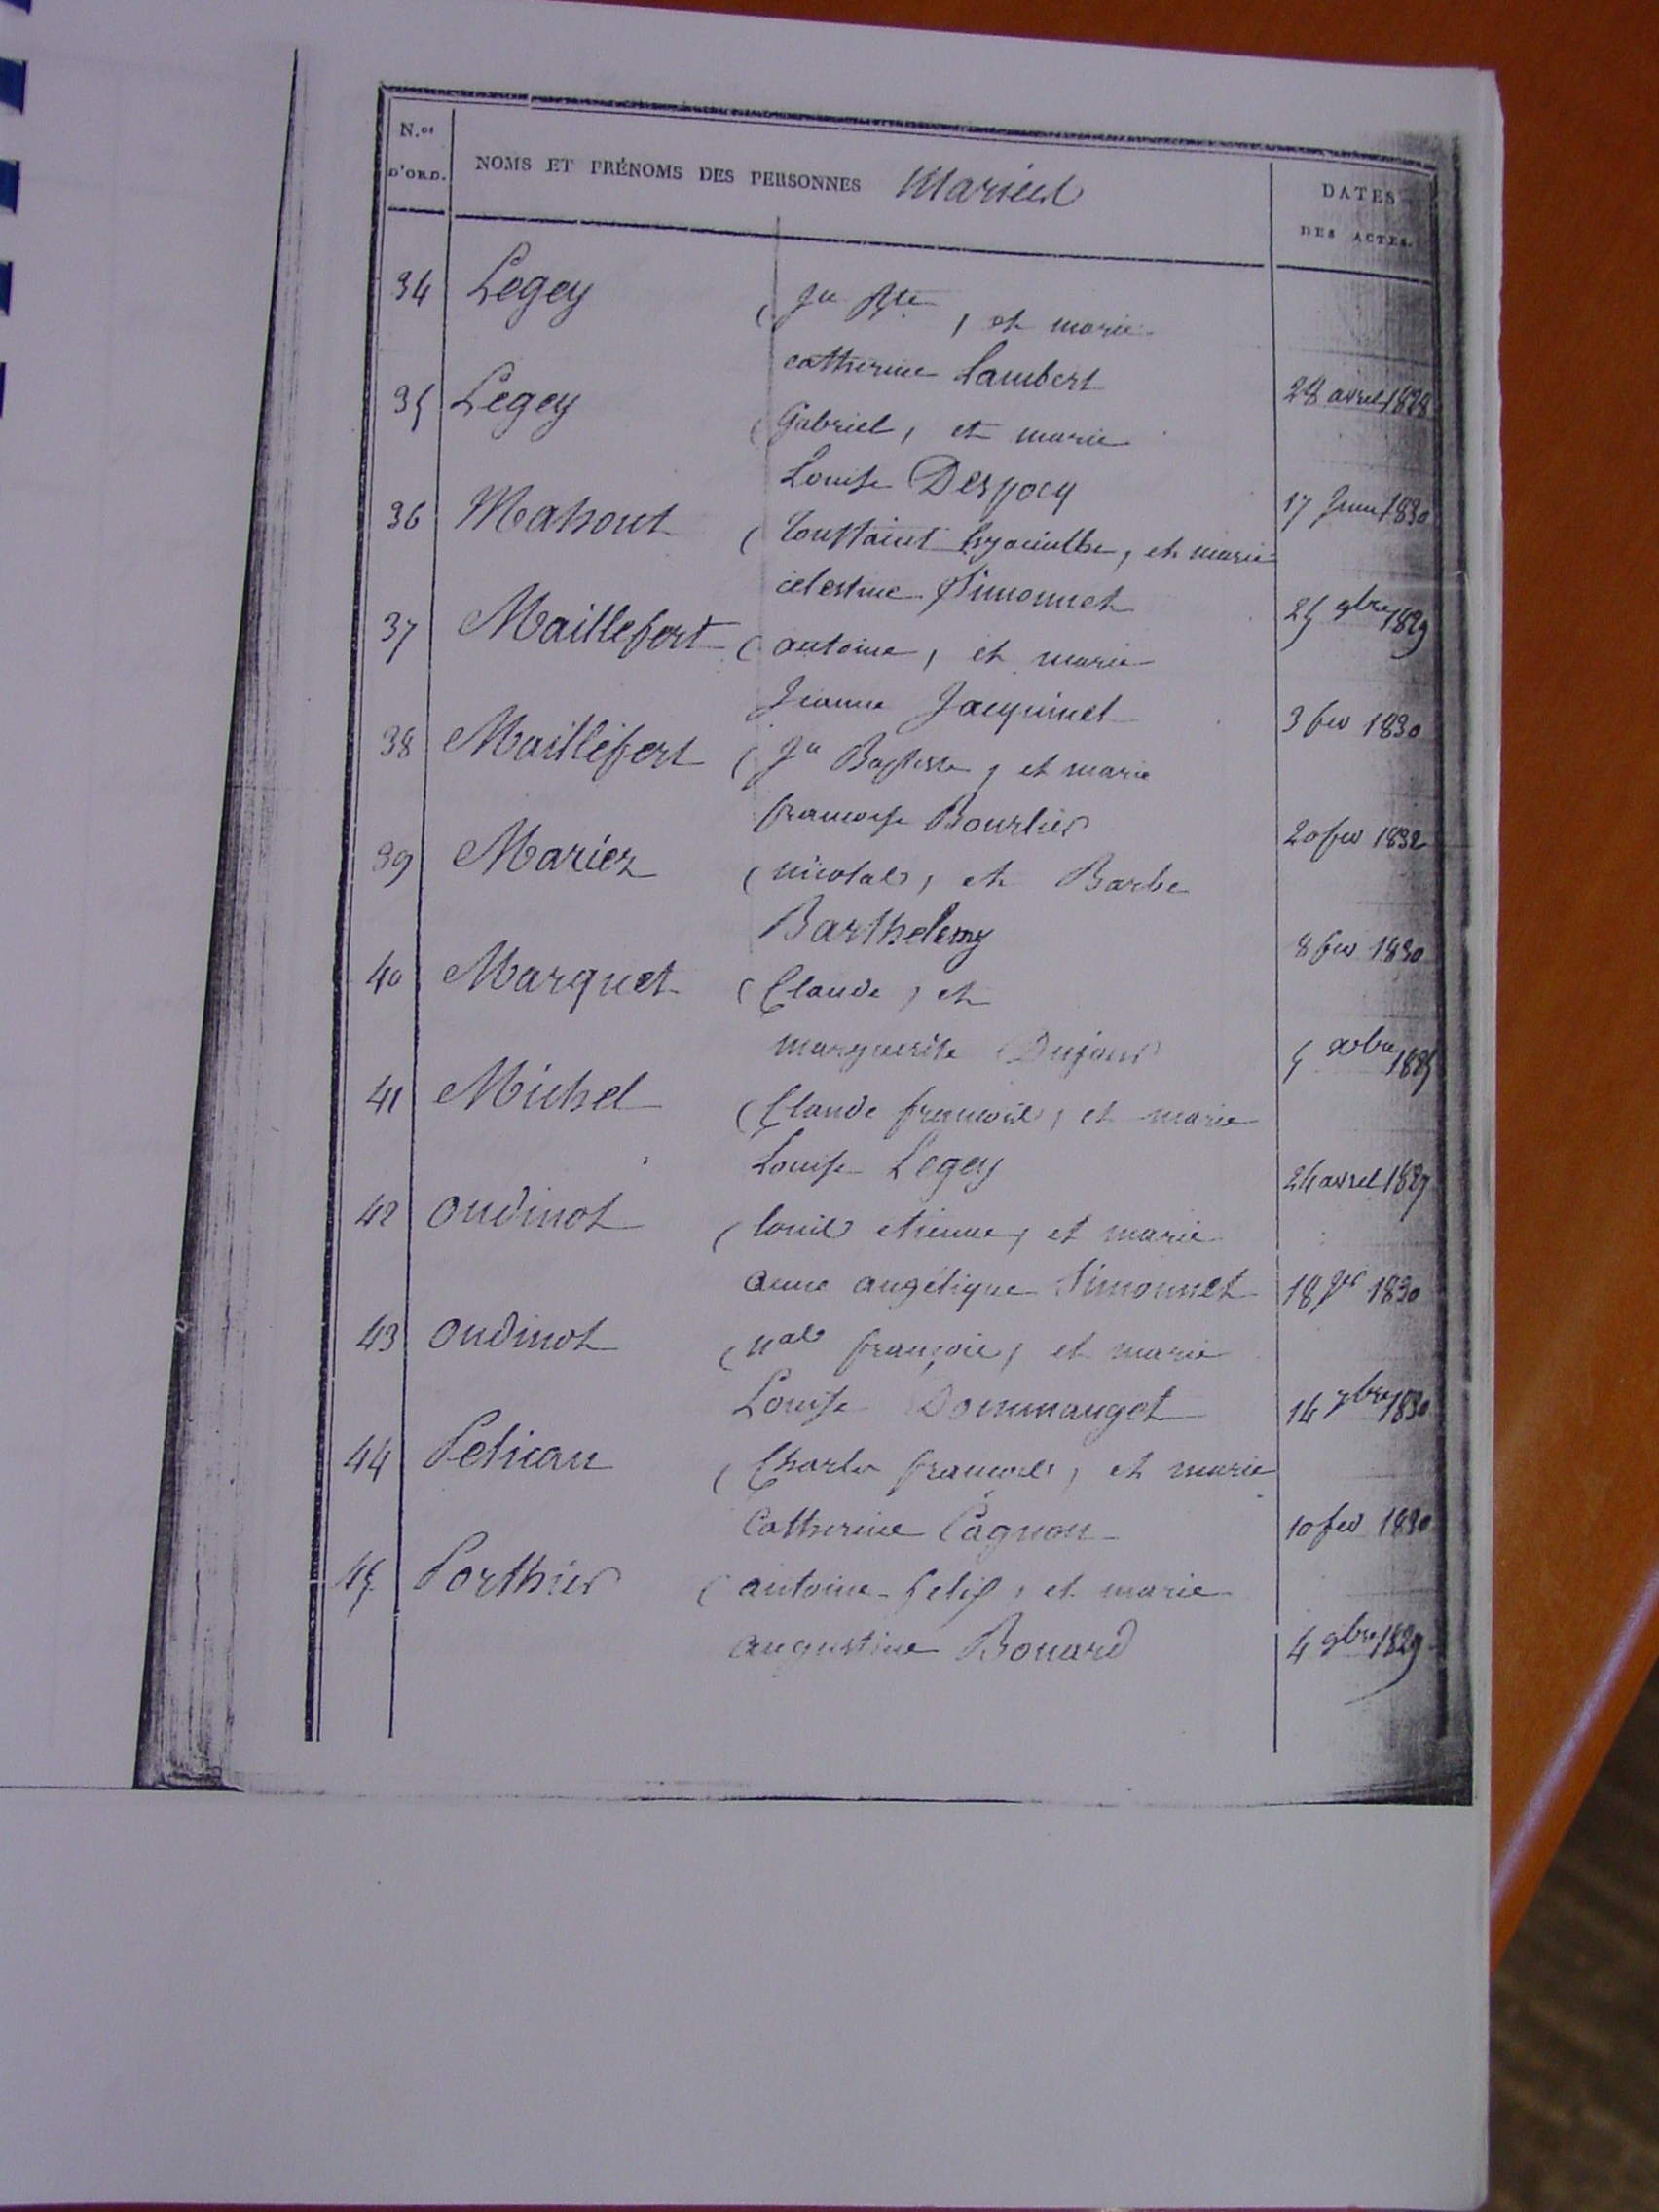 N.os D'ORD. NOMS ET PRÉNOMS DES PERSONNES Mariés DATES DES ACTES.
34 Legey ( Jn Bte , et marie
catherine Lambert 28 avril 1828
35 Legey ( Gabriel, et marie
Louise Despocq 17 Juin 1830
36 Mahout ( Toussaint hyacinthe, et marie
celestine Simonnet 25 9bre 1829
37 Maillefert ( antoine, et marie
Jeanne Jacquinet 3 fev 1830
38 Maillefert ( Jn Baptiste, et marie
françoise Bourlier 20 fev 1832
39 Mariez ( nicolas, et Barbe
Barthelemy 8 fev 1830
40 Marquet ( Claude, et
marguerite Dujour 5 xbre
41 Michel ( Claude françois, et marie
Louise Legey 24 avril 1827
42 oudinot ( louis etienne, et marie
anne angélique Simonnet 18 Jer 1830
43 oudinot ( nas françois, et marie
Louise Dommanget 14 7bre 1830
44 Pelican ( Charles françois, et marie
Catherine Cagnon 10 fev 1830
45 Porthier ( antoine felix, et marie
augustine Bonard 4 9bre 1829